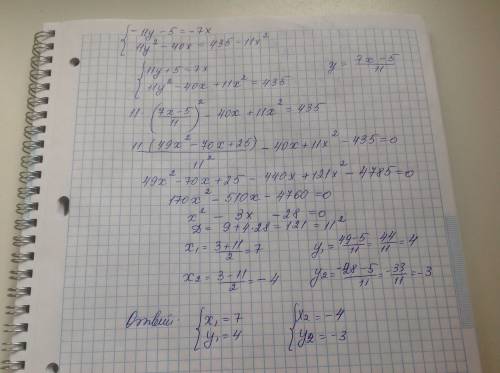 {-11y-5=-7x
{11y²-40x=435-11x²
{11y+5=7x
{11y²-40x+11x²=435
y=\frac{7x-5}{11}
11·(\frac{7x-5}{11})²-40x+11x²=435
\frac{11·(49x²-70x+25)}{11²}-40x+11x²-435=0
49x²-70x+25-440x+121x²-4785=0
170x²-510x-4760=0
x²-3x-28=0
D=9+4·28=121=11²
x₁=\frac{3+11}{2}=7 y₁=\frac{49-5}{11}=\frac{44}{11}=4
x₂=\frac{3-11}{2}=-4 y₂=\frac{-28-5}{11}=\frac{-33}{11}=-3
Ответ {x₁=7 {x₂=-4
{y₁=4 {y₂=-3